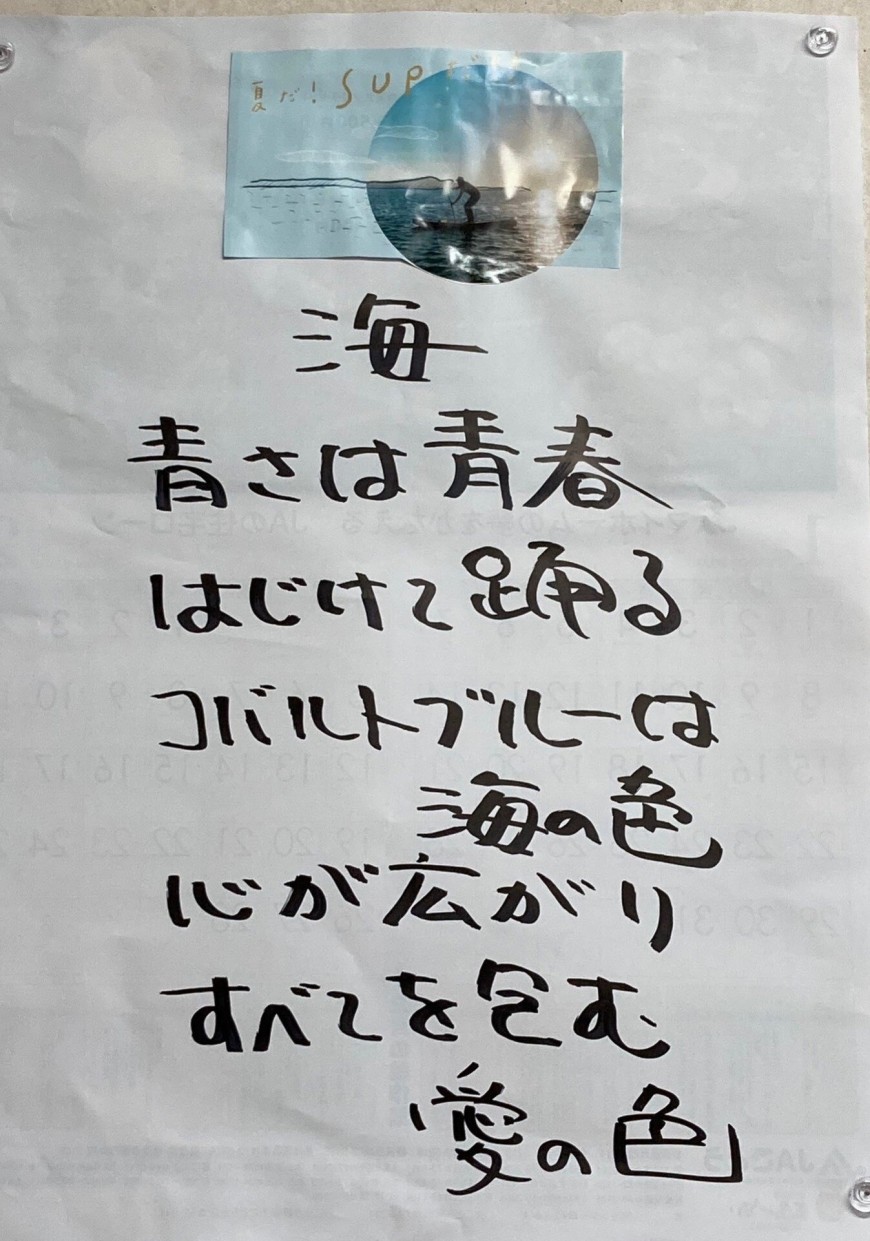 夏だ！SUPだ！
海
青さは青春
はじけて踊る
コバルトブルーは
海の色
心が広がり
すべてを包む
愛の色